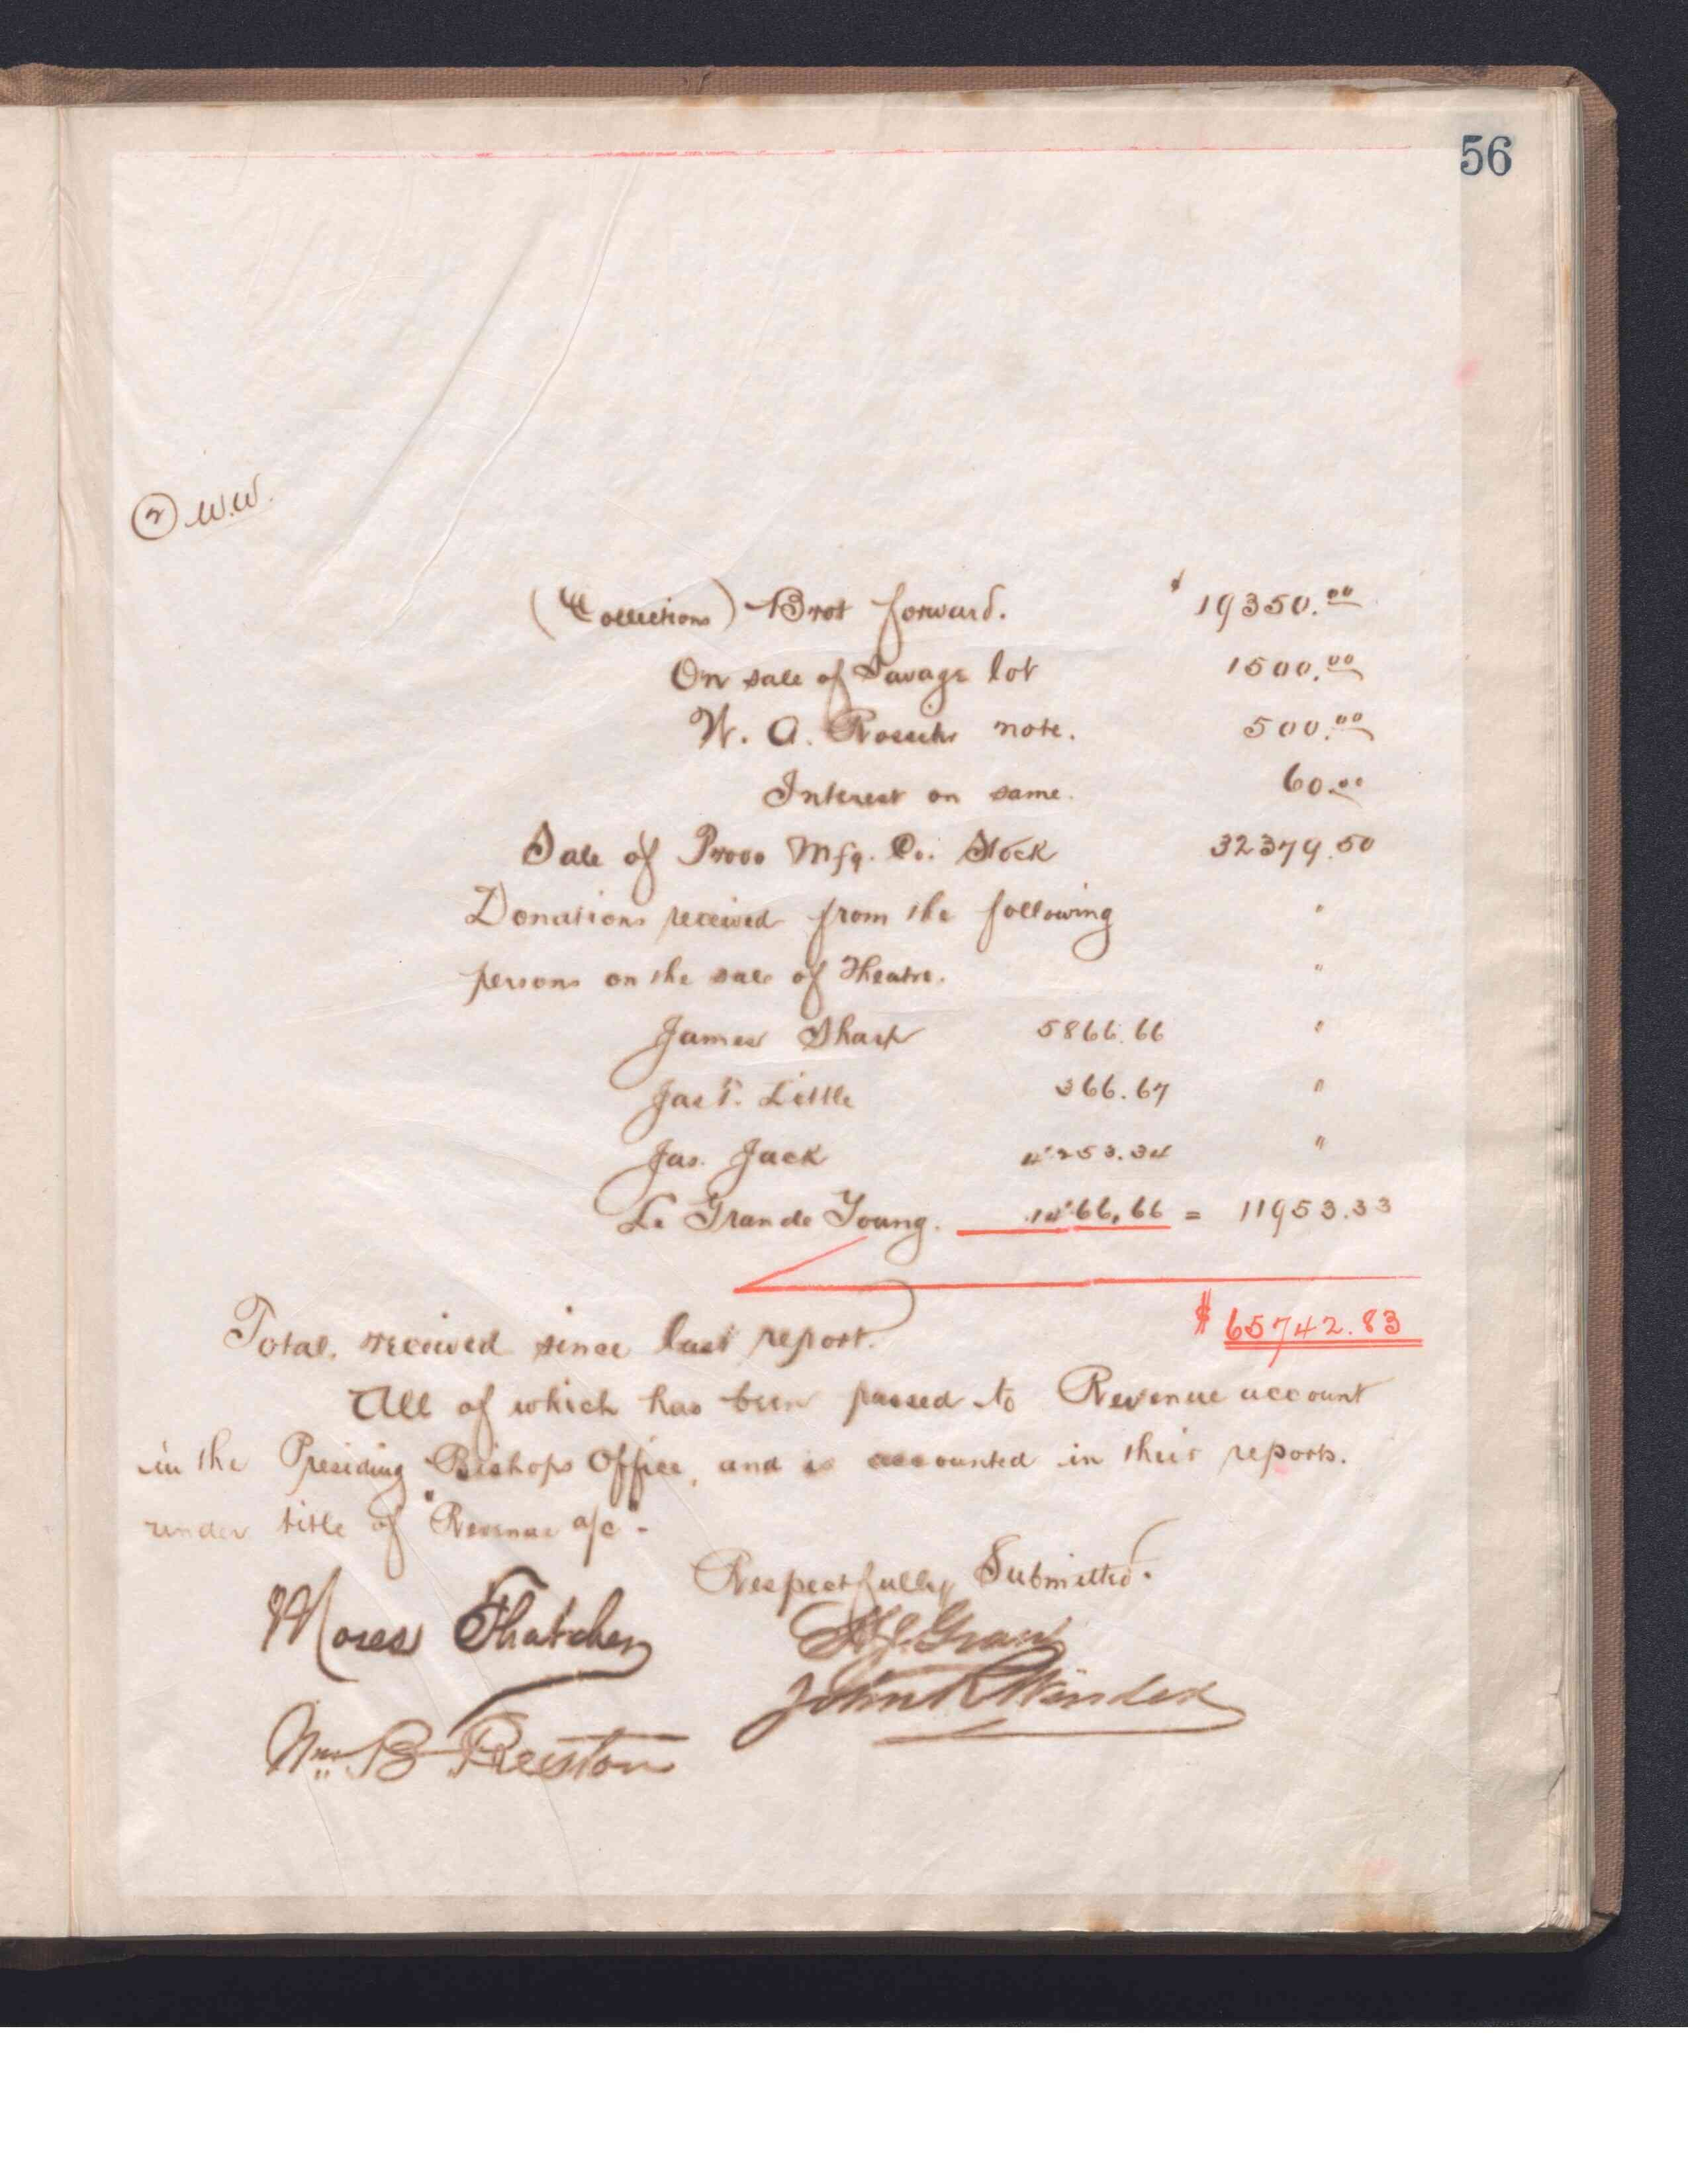 56
② W.W.
(Collections) Brot forward. $ 19350.00
On sale of Savage lot 1500.00
W. A. note. 500.00
Interest on same. 60.00
Sale of Provo Mfg. Co. Stock 32379.50
Donations received from the following "
persons on the sale of Theatre. "
James Sharp 5866.66 "
Jas T. Little 366.67 "
Jas. Jack 4253.34 "
Le Grande Young. 1466.66 = 11953.33
Total received since last report. $ 65742.83
All of which has been passed to Revenue account
in the Presiding Bishops Office, and is accounted in their reports.
under title of "Revenue a/c" -
Respectfully Submitted.
Moses Thatcher
H. J. Grant
John R Winder
Wm. B Preston